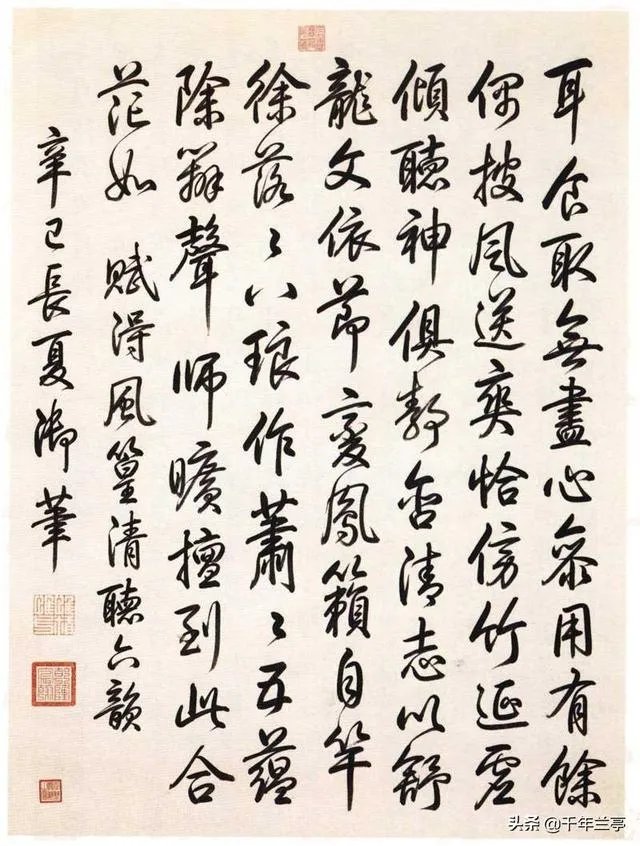 耳食取無盡心齋用有餘
偶披風送爽恰傍竹延虛
傾聽神俱靜含清志以舒
龍文依節變鳳籟自竿
徐落々八琅作蕭々五蘊
除辨聲師曠擅到此合
茫如 賦得風篁清聽六韻
辛巳長夏御筆
头条 @千年兰亭